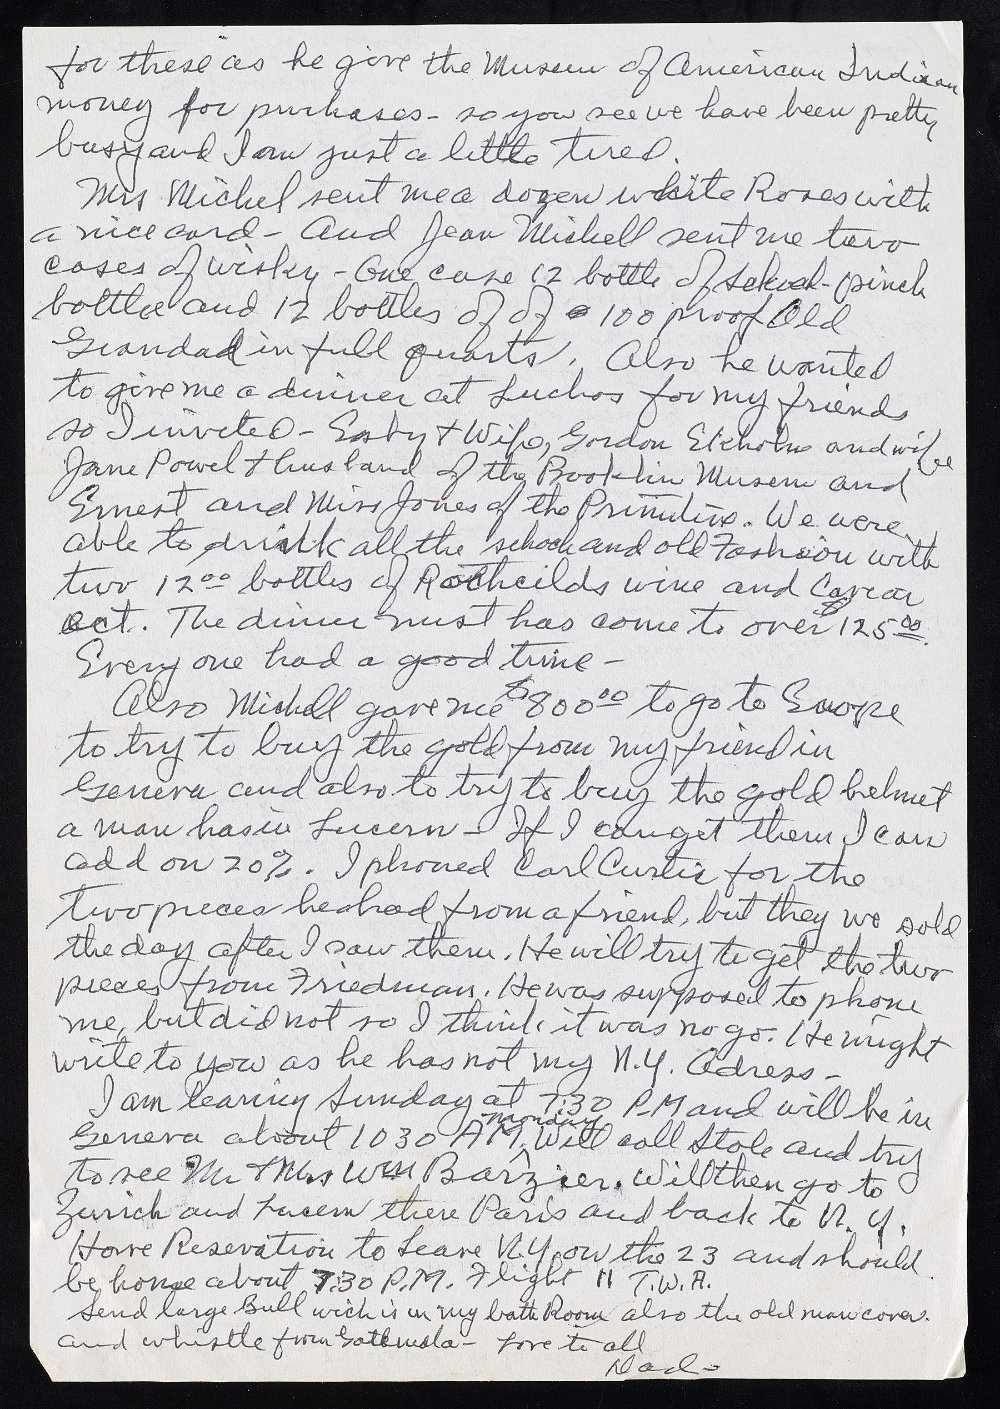 for these as he give the Museum of American Indian
money for purchases - so you see we have been pretty
busy and I am just a little tired.
Mrs Michel sent me a dozen white Roses with
a nice card - And Jean Michell sent me two
cases of wisky - One case 12 bottle of pinch
bottle and 12 bottles of of 100 proof Old
Grandad in full quarts. Also he wanted
to give me a dinner at Luchos for my friends
so I invited - Easby + Wife, Gordon Ekholm and wife
Jane Powel + husband of the Brooklin Museum and
Ernest and Miss Jones of the Primitive. We were
able to drink all the and old Fashion with
two 12 00 bottles of Rothcilds wine and Caviar
ect. The dinner must has come to over $125 00.
Every one had a good time -
Also Michell gave me $800 00 to go to Europe
to try to buy the gold from my friend in
Geneva and also to try to buy the gold helmet
a man has in Lucern - If I can get them I can
add on 20%. I phoned Carl Curtis for the
two pieces he had from a friend, but they we sold
the day after I saw them. He will try to get the two
pieces from Friedman. He was supposed to phone
me, but did not so I think it was no go. He might
write to you as he has not my N.Y. Adress -
I am leaving Sunday at 7:30 P.M and will be in
Geneva about 10 30 AM, Monday Will call Stole and try
to see Mr + Mrs Wm Barzier. Will then go to
Zurich and Lucern there Paris and back to N.Y.
Have Reservation to Leave N.Y. on the 23 and should
be home about 7:30 P.M. Flight 11 T.W.A.
Send large Bull wich is in my bath Room also the old man cover.
and whistle from Gatemala - Love to all
Dad -